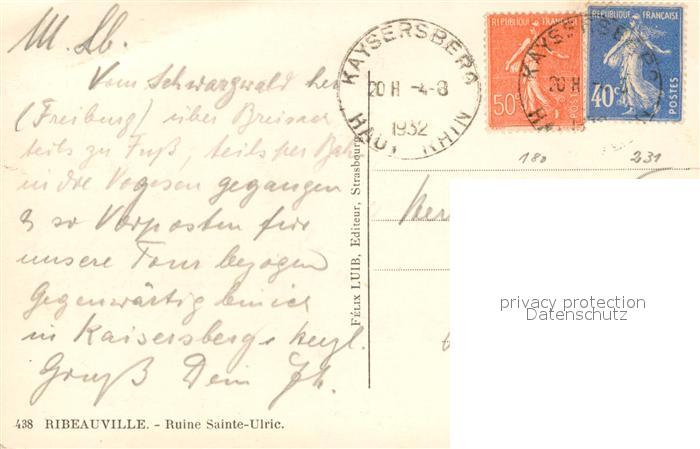 M. Lb.
Vom Schwarzwald her
(Freiburg) über Breisach
teils zu Fuß, teils per Bahn
in die Vogesen gegangen
u. so Vorposten für
unsere Tour bezogen
Gegenwärtig bin ich
in Kaisersberg. Hzgl.
Gruß Dein
438 RIBEAUVILLE. - Ruine Sainte-Ulric.
FÉLIX LUIB, Editeur, Strasbourg
KAYSERSBERG
20 H -4-8
1932
HAUT RHIN
REPUBLIQUE FRANÇAISE
50c
POSTES
REPUBLIQUE FRANÇAISE
40c
POSTES
KAYSERSBERG
20 H
180
231
privacy protection
Datenschutz